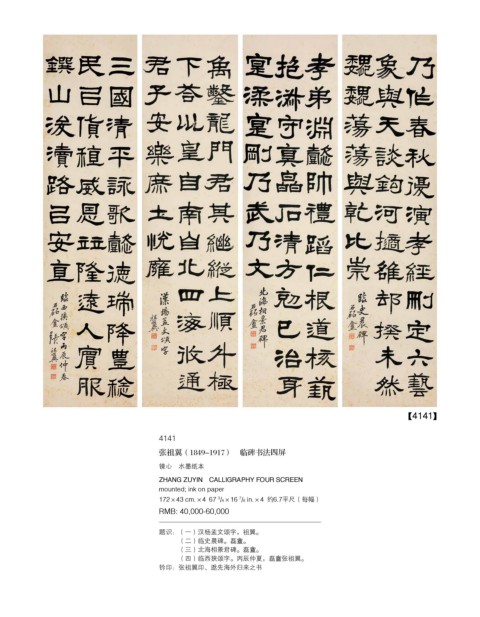 乃作春秋復演孝經刪定六藝
象與天談鈎河擿雒却揆未然
巍巍蕩蕩與乾比崇
臨史晨碑
磊盦
孝弟淵懿帥禮蹈仁根道核藝
抱淑守真皛石清方剋己治身
寔柔寔剛乃武乃文
北海相景君碑
磊盦
禹鑿龍門君其繼縱上順斗極
下荅以皇自南自北四海攸通
君子安樂庶士悅雍
漢楊孟文頌字
祖翼
三國清平詠歌懿德瑞降豐稔
民㠯貨稙威恩並隆遠人賓服
鐉山浚瀆路㠯安直
臨西狹頌字丙辰仲春
磊盦張祖翼
【4141】
4141
张祖翼（1849–1917） 临碑书法四屏
镜心 水墨纸本
ZHANG ZUYIN CALLIGRAPHY FOUR SCREEN
mounted; ink on paper
172 × 43 cm. × 4 67 ³/₄ × 16 ⁷/₈ in. × 4 约6.7平尺（每幅）
RMB: 40,000-60,000
题识：（一）汉杨孟文颂字。祖翼。
（二）临史晨碑。磊盦。
（三）北海相景君碑。磊盦。
（四）临西狭颂字。丙辰仲夏，磊盦张祖翼。
钤印：张祖翼印、逖先海外归来之书